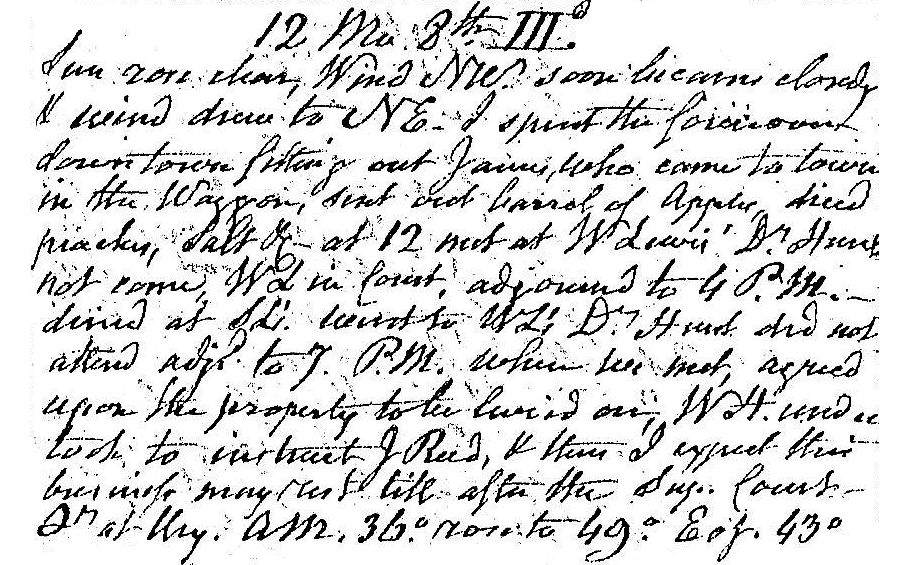 12 Mo 8th III.d
Sun rose clear, Wind NW. soon became cloudy
& wind drew to NE. I spent the forenoon
down town fitting out James, who came to town
in the Waggon, sent out barrel of Apples, dried
peaches, Salt &c - at 12 met at W Lewis' Dr. Hunt
not come, WL in Court, adjourned to 4 P.M. -
dined at SL's. went to WL's Dr Hunt did not
attend adjd. to 7. P.M. when we met, agreed
upon the property to be levied on, W H. under
took to instruct J Reed, & thus I expect this
business may rest till after the Sup. Court -
Tr at 6 AM. 36° rose to 49° Evg. 43°